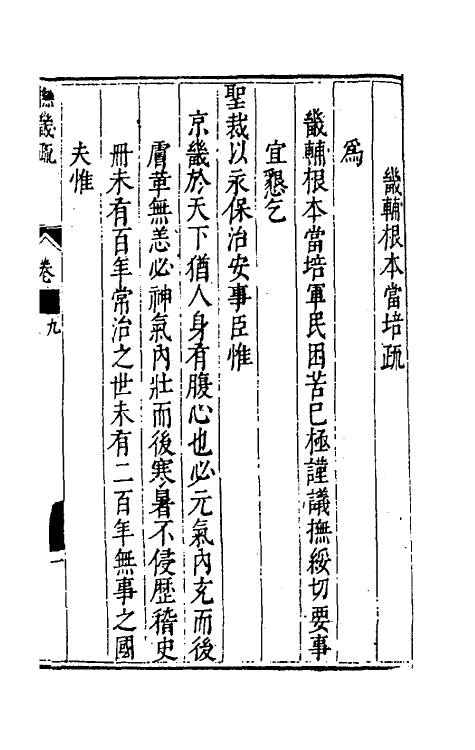 畿輔根本當培疏
爲
畿輔根本當培軍民困苦已極謹議撫綏切要事
宜懇乞
聖裁以永保治安事臣惟
京畿於天下猶人身有腹心也必元氣內充而後
膚革無恙必神氣內壯而後寒暑不侵歷稽史
冊未有百年常治之世未有二百年無事之國
夫惟
撫畿疏
卷
九
一